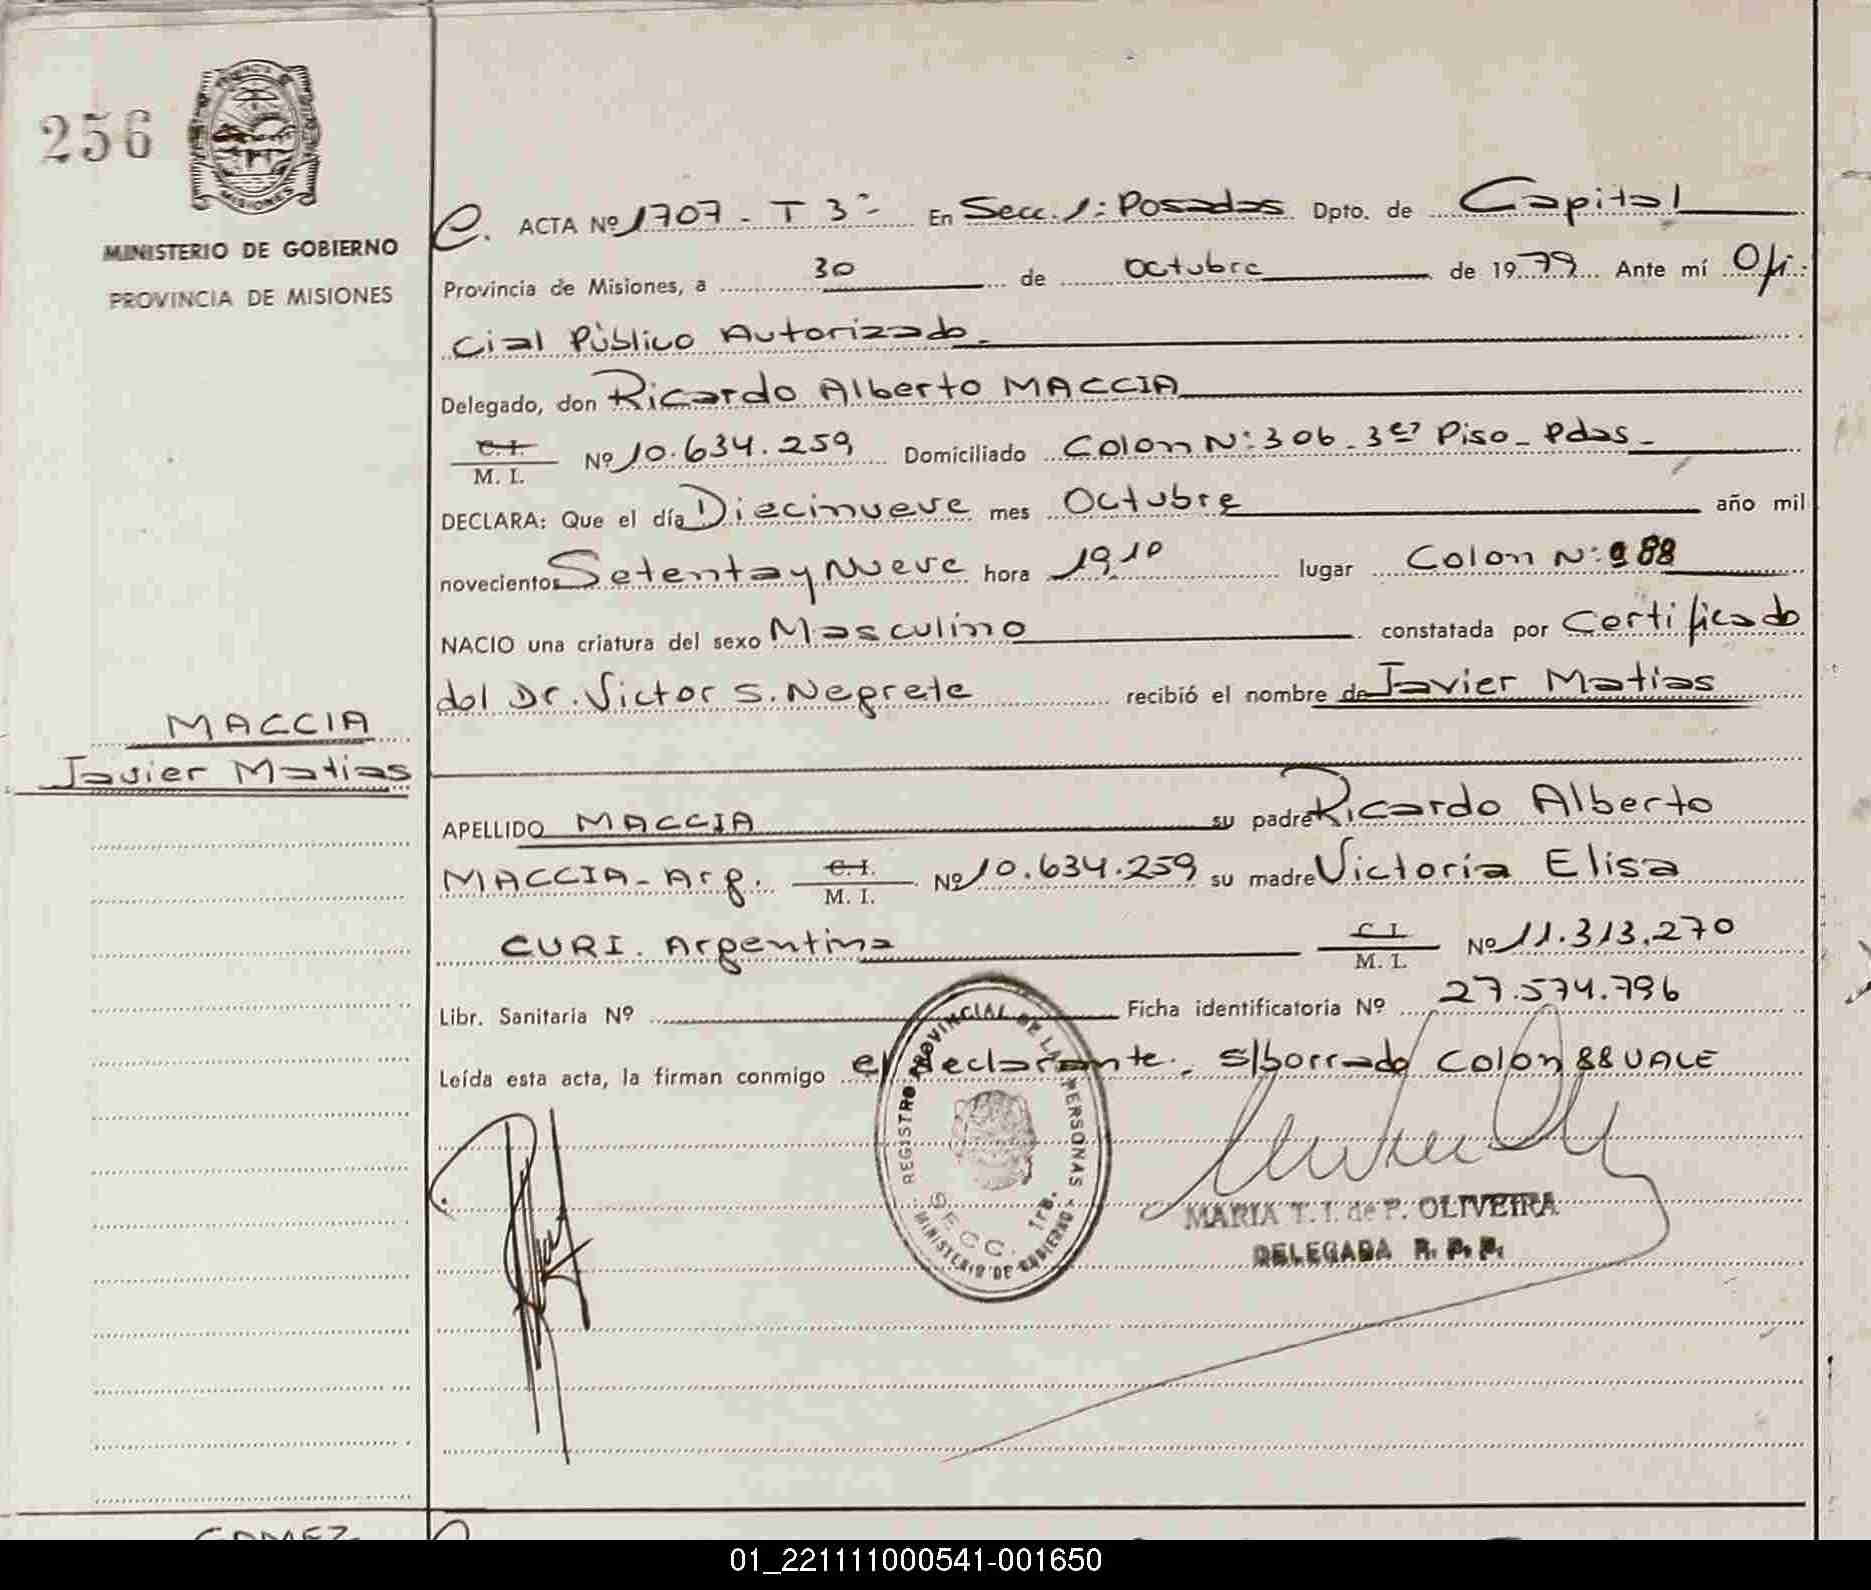 256
MISIONES
MINISTERIO DE GOBIERNO
PROVINCIA DE MISIONES
MACCIA
Javier Matias
ACTA Nº 1707 - T 3º En Secc. 1: Posadas Dpto. de Capital
Provincia de Misiones, a 30 de octubre de 1979 Ante mí Ofi-
cial Público Autorizado.
Delegado, don Ricardo Alberto MACCIA
C.I.
M. I. Nº 10.634.259 Domiciliado Colon Nº 306 - 3er Piso - Pdas -
DECLARA: Que el día Diecinueve mes Octubre año mil
novecientos Setenta y Nueve hora 19,10 lugar Colon Nº 988
NACIO una criatura del sexo Masculino constatada por Certificado
del Dr. Victor S. Negrete recibió el nombre de Javier Matias
APELLIDO MACCIA su padre Ricardo Alberto
MACCIA - Arg. C.I.
M. I. Nº 10.634.259 su madre Victoria Elisa
CURI. Argentina C I.
M. I. Nº 11.313.270
Libr. Sanitaria Nº Ficha identificatoria Nº 27.574.796
Leída esta acta, la firman conmigo el declarante. S/borrado Colon 88 VALE
REGISTRO PROVINCIAL DE LAS PERSONAS
SECC. 1ra.
MINISTERIO DE GOBIERNO
MARIA T. I. de P. OLIVEIRA
DELEGADA R. P. P.
GOMEZ
01_221111000541-001650